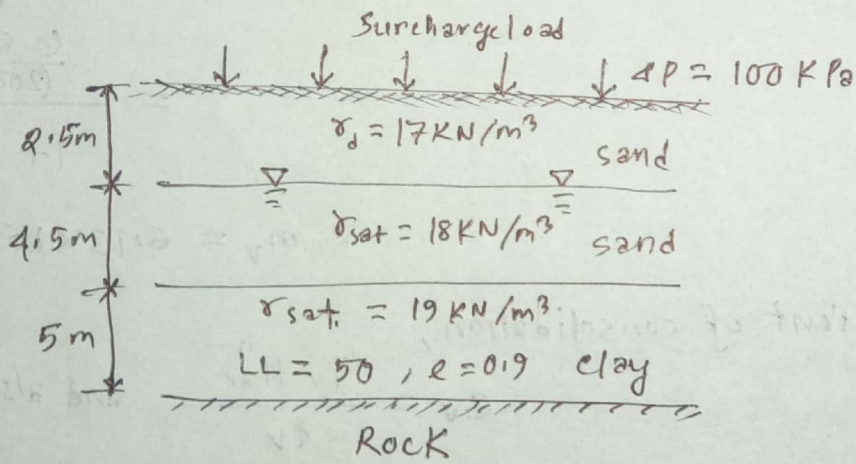 Surcharge load
ΔP = 100 KPa
2.5m
γd = 17KN/m³
sand
4.5m
γsat = 18KN/m³ sand
γsat. = 19 KN/m³
5m
LL = 50, e = 0.9 clay
ROCK